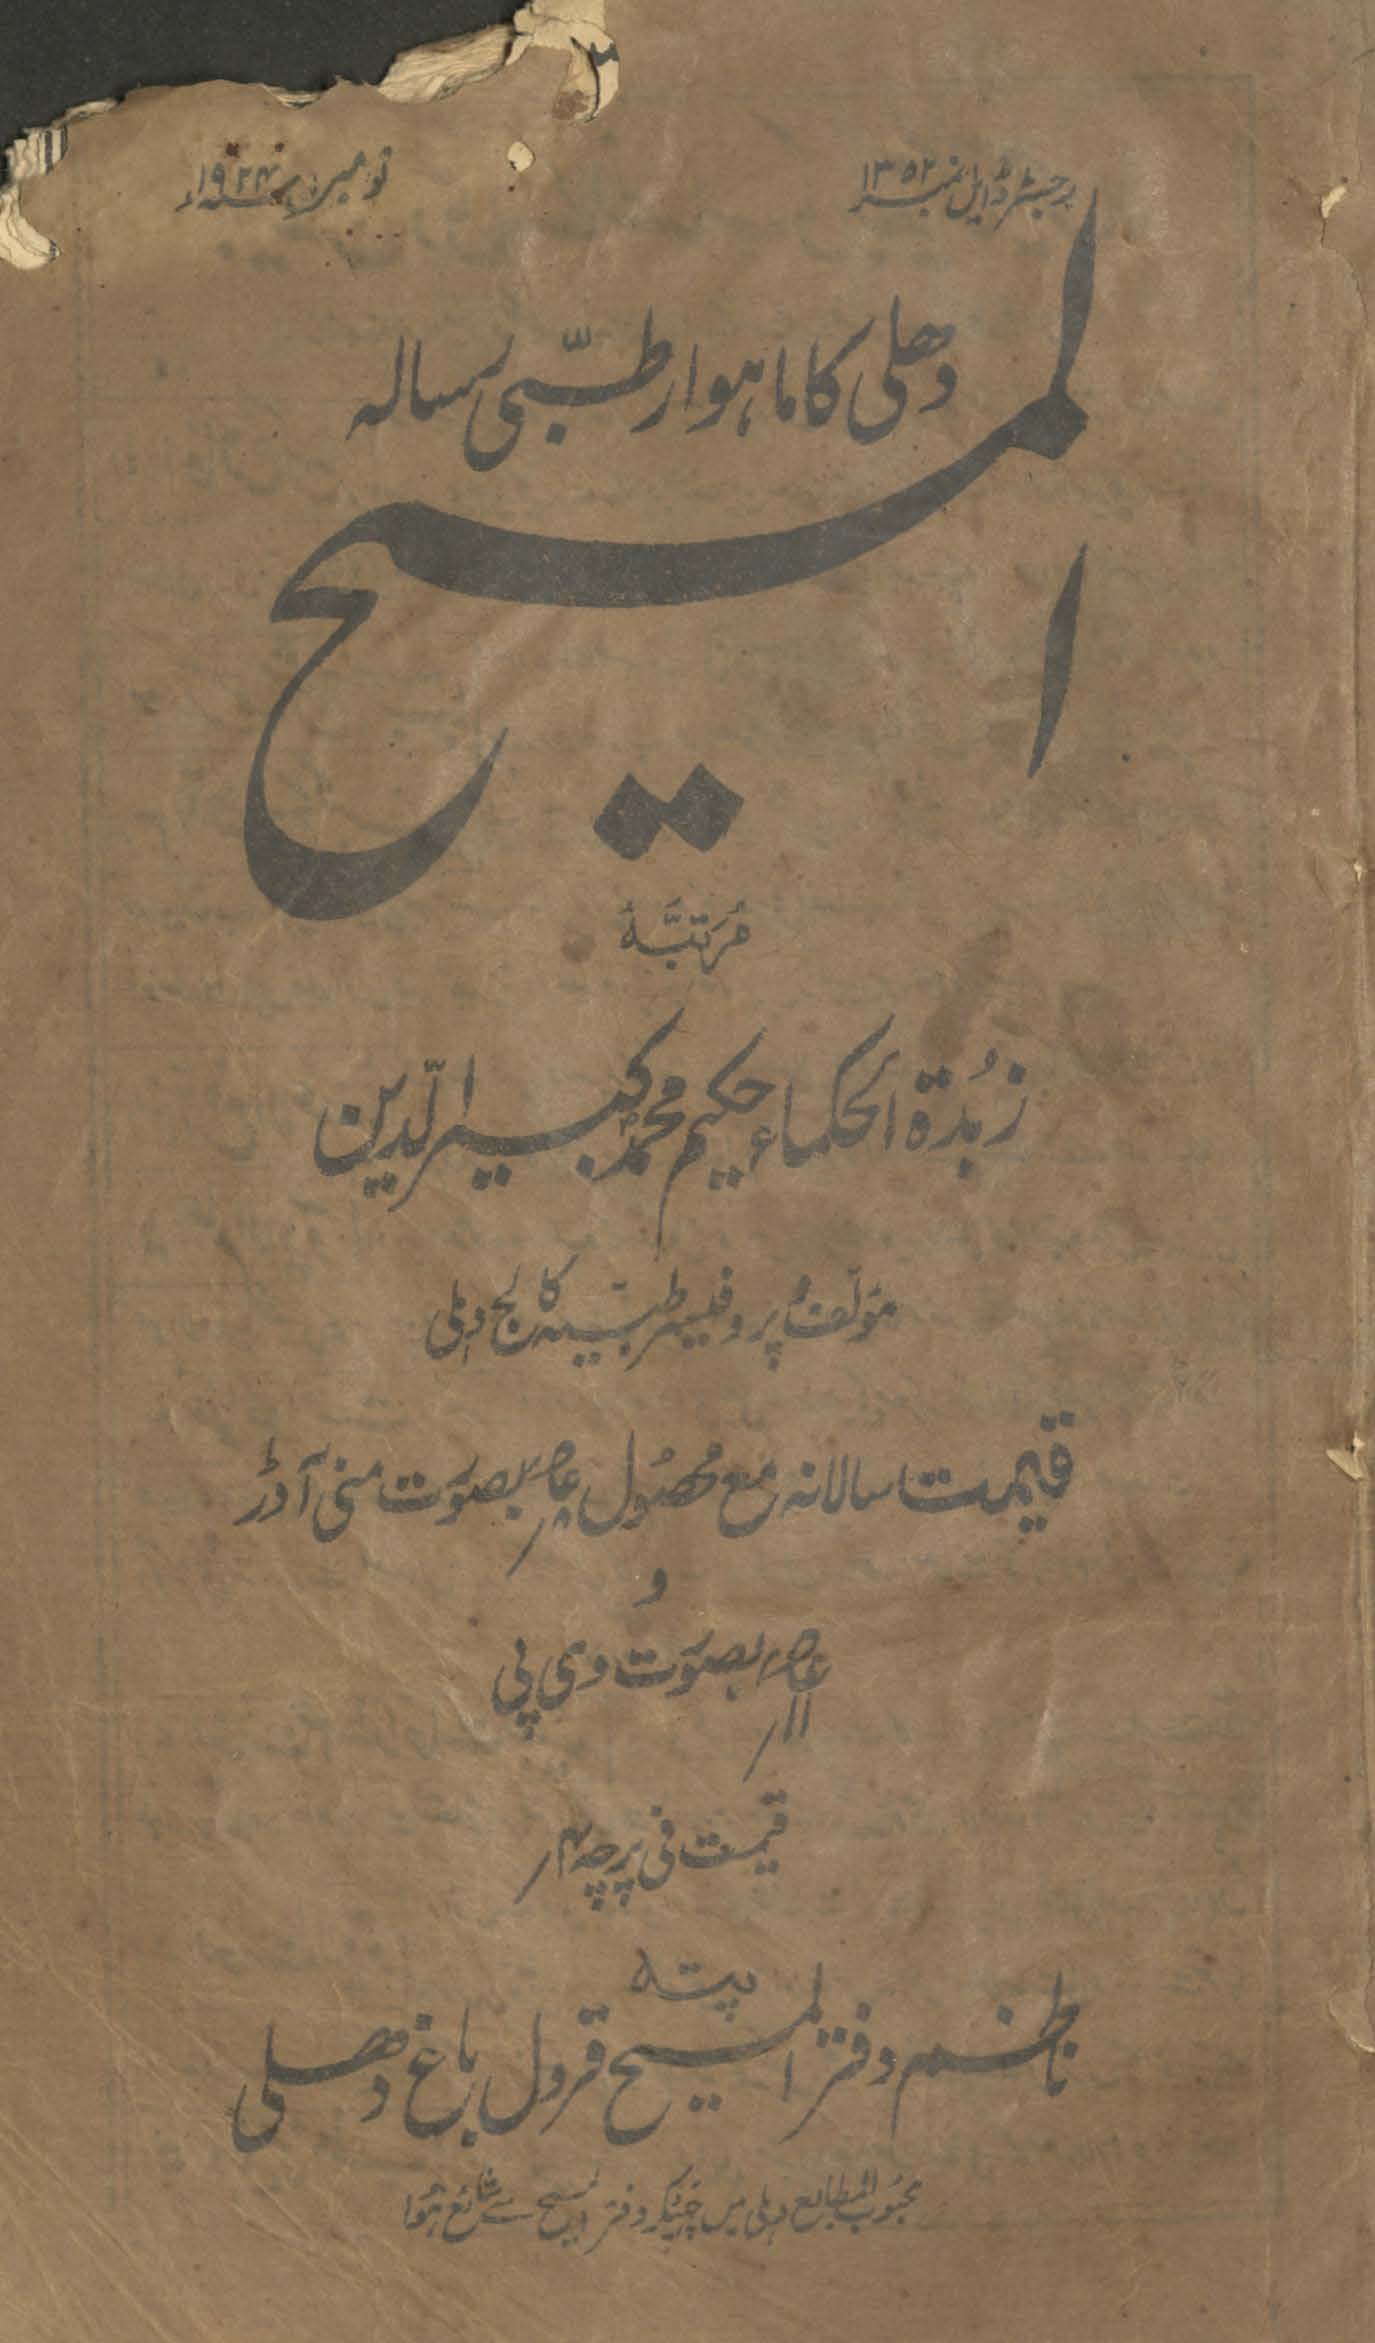 رجسٹرڈ ایل نمبر ۱۳۵۲
نومبر ۱۹۲۴ء
دھلی کا ماہوار طبّی رسالہ
المسیح
مُرتبَّہُ
زُبدۃ الحکماء حکیم محمد کبیر الدین
مؤلف و پروفیسر طبیہ کالج دہلی
قیمت سالانہ مع محصول بصورت منی آڈر
و
بصورت وی پی
قیمت فی پرچہ ۴؍
پتہ
ناظم دفتر المسیح قرول باغ دھلی
محبوب المطابع دہلی میں چھپکر دفتر المسیح سے شائع ہوا